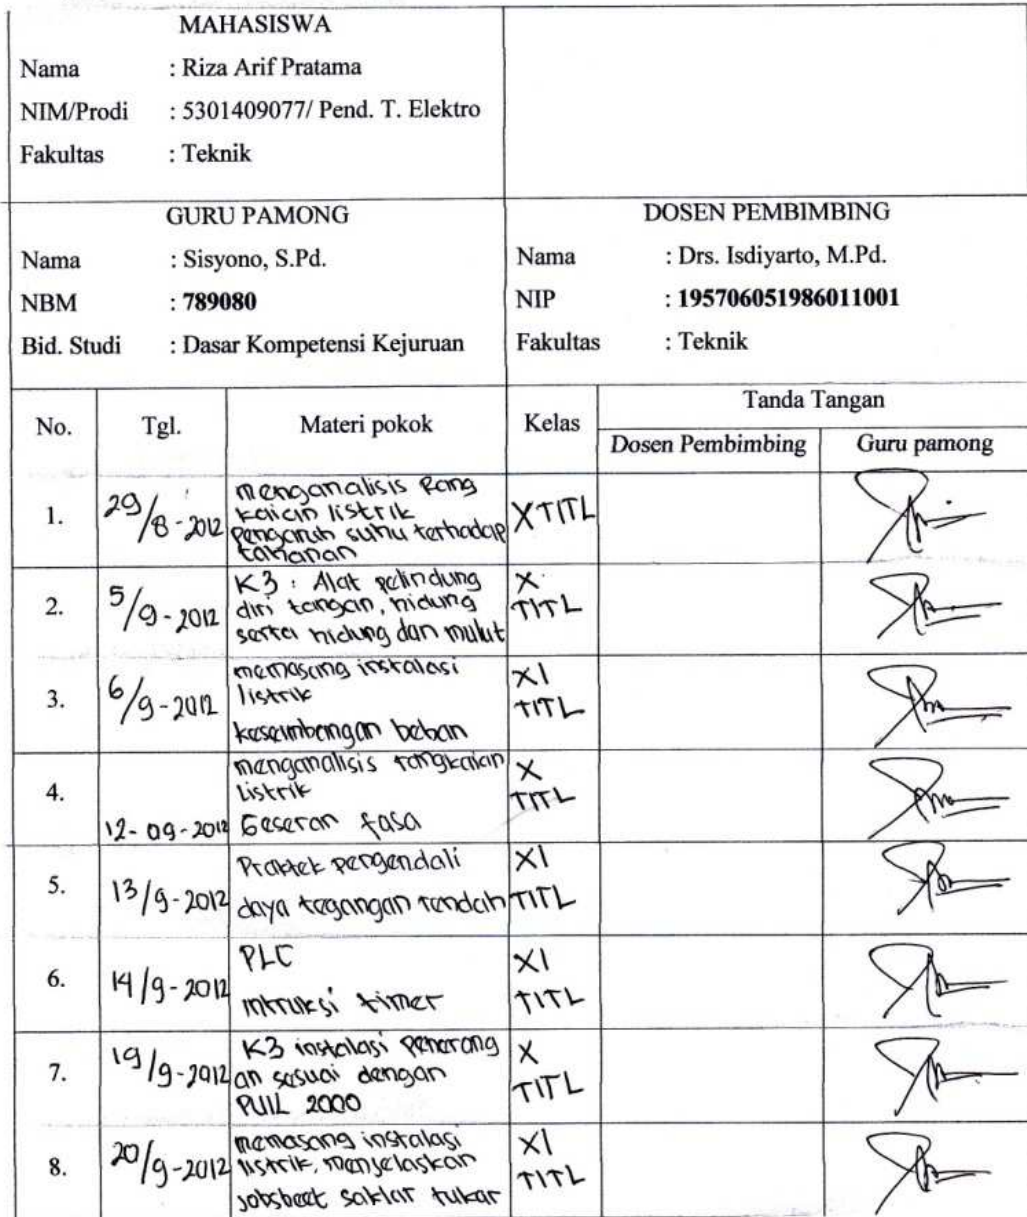 MAHASISWA
Nama : Riza Arif Pratama
NIM/Prodi : 5301409077/ Pend. T. Elektro
Fakultas : Teknik
GURU PAMONG
Nama : Sisyono, S.Pd.
NBM : 789080
Bid. Studi : Dasar Kompetensi Kejuruan
DOSEN PEMBIMBING
Nama : Drs. Isdiyarto, M.Pd.
NIP : 195706051986011001
Fakultas : Teknik
No. Tgl. Materi pokok Kelas Tanda Tangan
Dosen Pembimbing Guru pamong
1. 29/8-2012 menganalisis Rang
kaian listrik
pengaruh suhu terhadap
tahanan
X TITL
2. 5/9-2012 K3 : Alat pelindung
diri tangan, hidung
serta hidung dan mulut
X
TITL
3. 6/9-2012 memasang instalasi
listrik
keseimbangan beban
XI
TITL
4. 12-09-2012 menganalisis rangkaian
Listrik
Geseran fasa
X
TITL
5. 13/9-2012 Praktek pengendali
daya tegangan rendah
XI
TITL
6. 14/9-2012 PLC
intruksi timer
XI
TITL
7. 19/9-2012 K3 instalasi penerang
an sesuai dengan
PUIL 2000
X
TITL
8. 20/9-2012 memasang instalasi
listrik, menjelaskan
jobsheet saklar tukar
XI
TITL